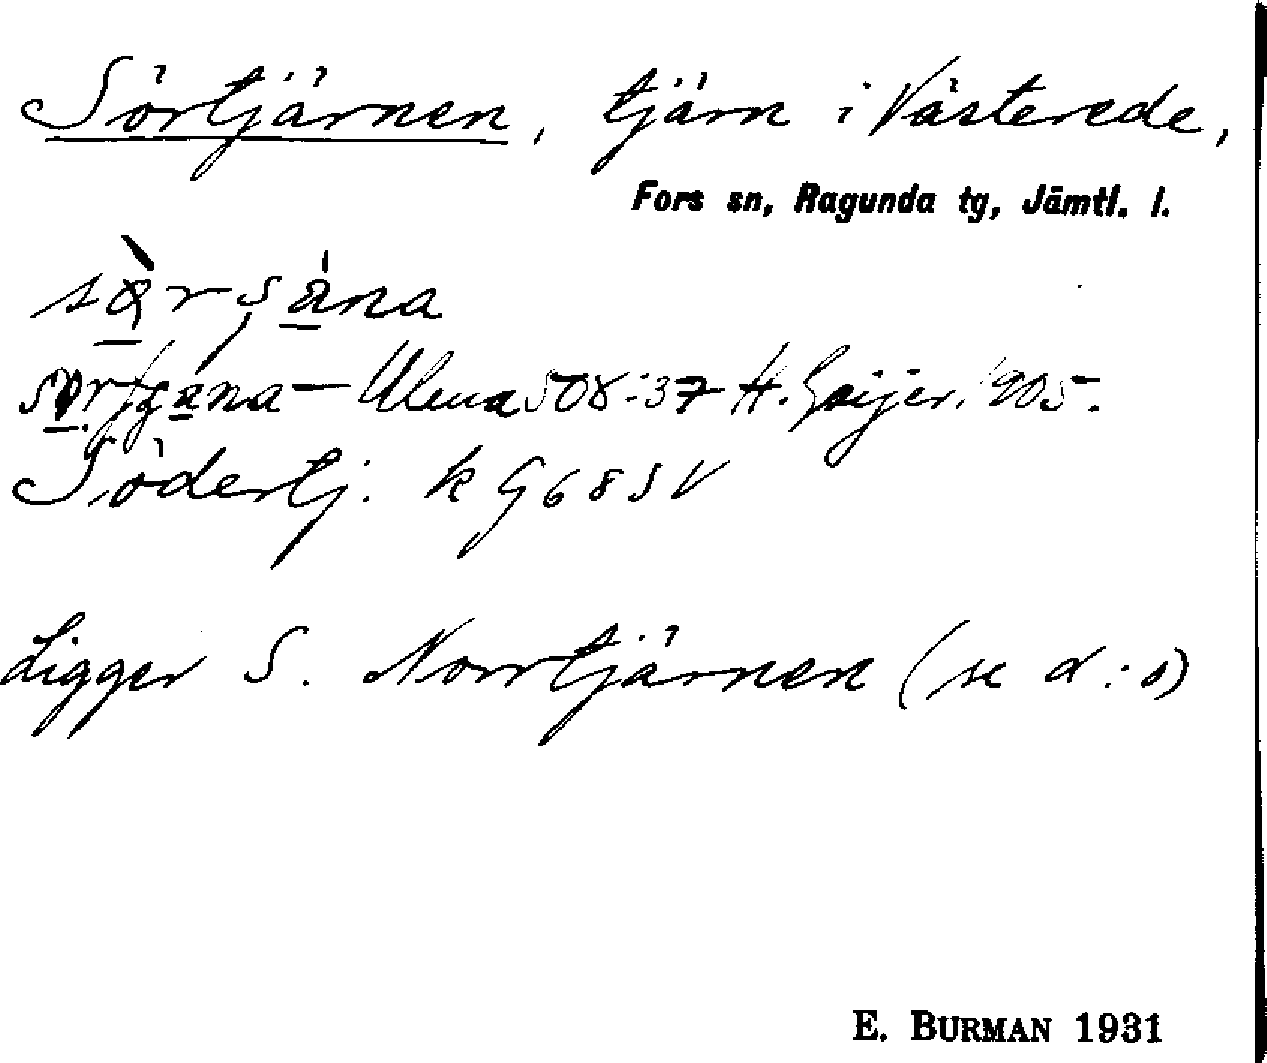 Sörtjärnen, tjärn i Västerede,
Fors sn, Ragunda tg, Jämtl. l.
Ulma 508:37 H. Geijer, 1905.
Södertj. k G 68 S V
Ligger S. Norrtjärnen (se d:o)
E. BURMAN 1931